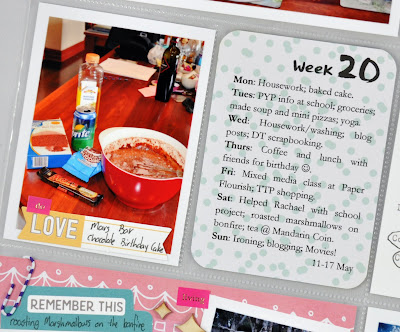 Week 20
Mon: Housework; baked cake.
Tues: PYP info at school; groceries;
made soup and mini pizzas; yoga.
Wed: Housework/washing; blog
posts; DT scrapbooking.
Thurs: Coffee and lunch with
friends for birthday ☺.
Fri: Mixed media class at Paper
Flourish; TTP shopping.
Sat: Helped Rachael with school
project; roasted marshmallows on
bonfire; tea @ Mandarin Coin.
Sun: Ironing; blogging; Movies!
11-17 May
Sprite
this
LOVE
Mars Bar
Chocolate Birthday Cake
REMEMBER THIS
roasting Marshmallows on the bonfire